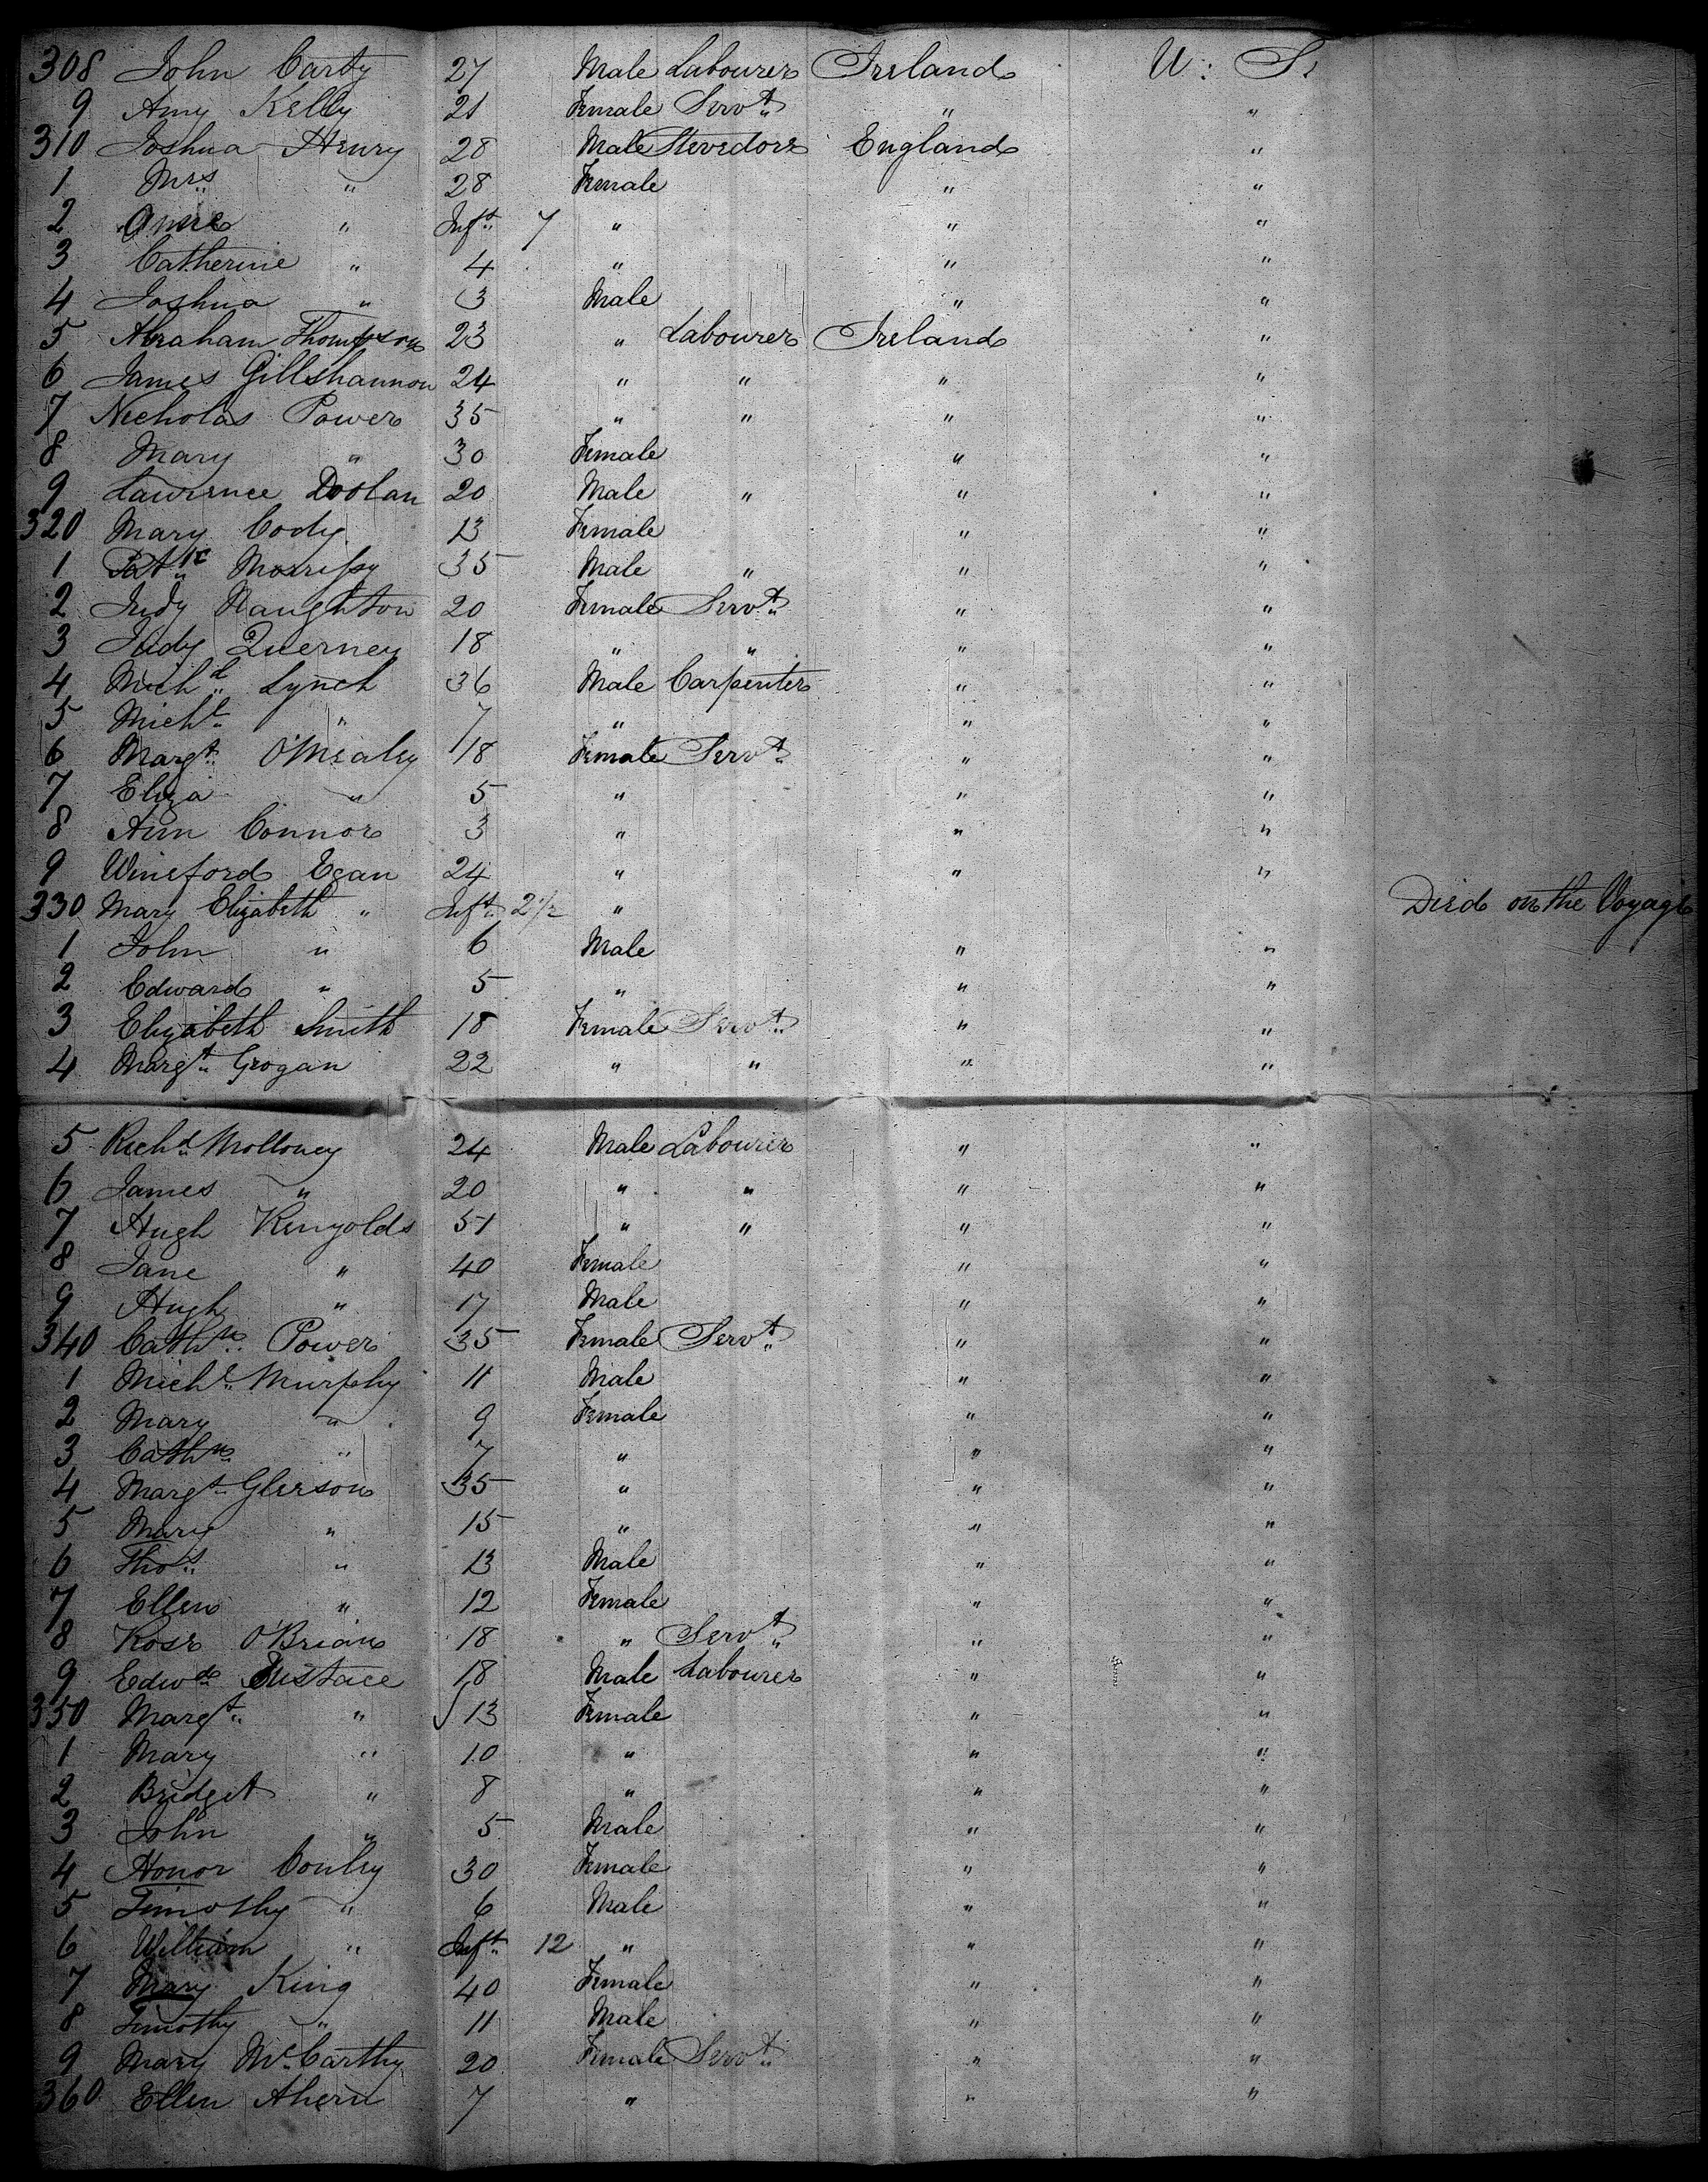 308 John Carty 27 Male Labourer Ireland U: S:
9 Amy Kelly 21 Female Servt " "
310 Joshua Henry 28 Male Stevedore England "
1 Mrs " 28 Female " "
2 Anne " Inft 7 " " "
3 Catherine " 4 " " "
4 Joshua " 3 Male " "
5 Abraham Thompson 23 " Labourer Ireland "
6 James Gillshannon 24 " " " "
7 Nicholas Power 35 " " " "
8 Mary " 30 Female " "
9 Lawrence Doolan 20 Male " " "
320 Mary Cody 13 Female " "
1 Patk Morrissy 35 Male " " "
2 Judy Naughton 20 Female Servt " "
3 Judy Querney 18 " " " "
4 Michl Lynch 36 Male Carpenter " "
5 Michl " 7 " " "
6 Margt O'Mealey 18 Female Servt " "
7 Eliza " 5 " " "
8 Ann Connor 3 " " "
9 Wineford Egan 24 " " "
330 Mary Elizabeth " Inft 2 1/2 " Died on the Voyage
1 John " 6 Male " "
2 Edward " 5 " " "
3 Elizabeth Smith 18 Female Servt " "
4 Margt Grogan 22 " " " "
5 Richd Molloney 24 Male Labourer " "
6 James " 20 " " " "
7 Hugh Renyolds 51 " " " "
8 Jane " 40 Female " "
9 Hugh " 17 Male " "
340 Cathn Power 35 Female Servt " "
1 Michl Murphy 11 Male " "
2 Mary " 9 Female " "
3 Cathn " 7 " " "
4 Margt Gleeson 35 " " "
5 Mary " 15 " " "
6 Thos " 13 Male " "
7 Ellen " 12 Female " "
8 Rose O'Brian 18 " Servt " "
9 Edwd Eustace 18 Male Labourer " "
350 Margt " 13 Female " "
1 Mary " 10 " " "
2 Bridget " 8 " " "
3 John " 5 Male " "
4 Honor Conley 30 Female " "
5 Timothy " 6 Male " "
6 William " Inft 12 " " "
7 Mary King 40 Female " "
8 Timothy " 11 Male " "
9 Mary McCarthy 20 Female Servt " "
360 Ellen Ahern 7 " " "